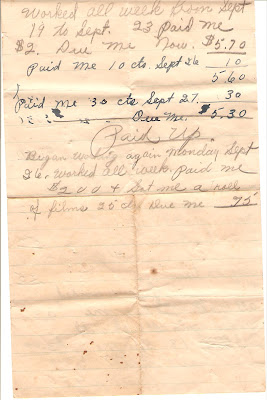 Worked all week from Sept
19 to Sept. 23 Paid me
$2. Due me Now. $5.70
Paid me 10 cts. Sept 26 10
5 60
Paid me 30 cts Sept 27. 30
Due Me. $5.30
Paid Up.
Began work again Monday Sept
26. Worked all week. Paid me
$2.00 + Got me a roll
of films 25 cts Due me 75